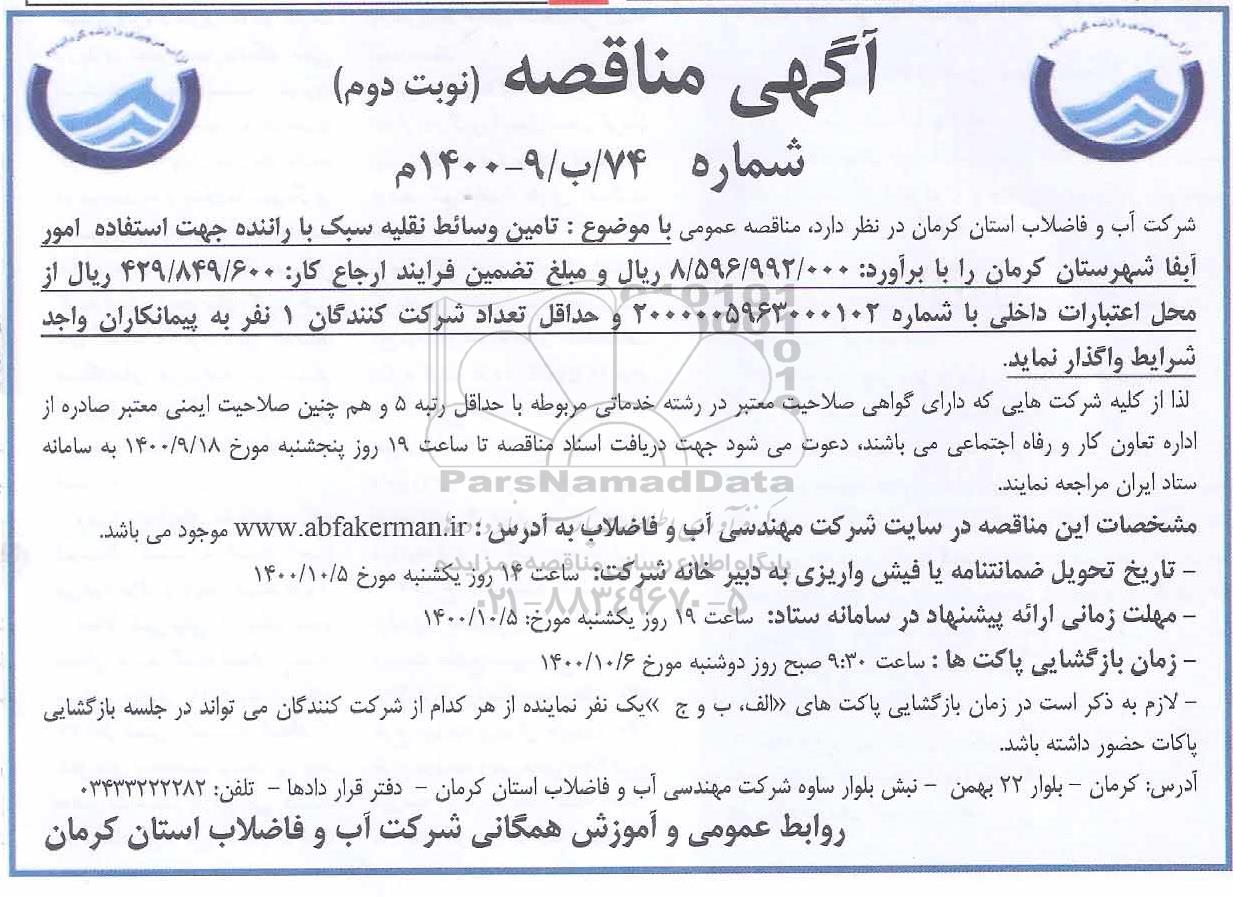 آگهی مناقصه (نوبت دوم)
شماره ۷۴/ب/۹-۱۴۰۰م
شرکت آب و فاضلاب استان کرمان در نظر دارد، مناقصه عمومی با موضوع : تامین وسائط نقلیه سبک با راننده جهت استفاده امور
آبفا شهرستان کرمان را با برآورد: ۸/۵۹۶/۹۹۲/۰۰۰ ریال و مبلغ تضمین فرایند ارجاع کار: ۴۲۹/۸۴۹/۶۰۰ ریال از
محل اعتبارات داخلی با شماره ۲۰۰۰۰۰۵۹۶۳۰۰۰۱۰۲ و حداقل تعداد شرکت کنندگان ۱ نفر به پیمانکاران واجد
شرایط واگذار نماید.
لذا از کلیه شرکت هایی که دارای گواهی صلاحیت معتبر در رشته خدماتی مربوطه با حداقل رتبه ۵ و هم چنین صلاحیت ایمنی معتبر صادره از
اداره تعاون کار و رفاه اجتماعی می باشند، دعوت می شود جهت دریافت اسناد مناقصه تا ساعت ۱۹ روز پنجشنبه مورخ ۱۴۰۰/۹/۱۸ به سامانه
ستاد ایران مراجعه نمایند.
ParsNamadData
مشخصات این مناقصه در سایت شرکت مهندسی آب و فاضلاب به آدرس : www.abfakerman.ir موجود می باشد.
پایگاه اطلاع رسانی مناقصه و مزایده
- تاریخ تحویل ضمانتنامه یا فیش واریزی به دبیر خانه شرکت: ساعت ۱۴ روز یکشنبه مورخ ۱۴۰۰/۱۰/۵
۰۲۱-۸۸۳۴۹۶۷۰-۵
- مهلت زمانی ارائه پیشنهاد در سامانه ستاد: ساعت ۱۹ روز یکشنبه مورخ: ۱۴۰۰/۱۰/۵
- زمان بازگشایی پاکت ها : ساعت ۹:۳۰ صبح روز دوشنبه مورخ ۱۴۰۰/۱۰/۶
- لازم به ذکر است در زمان بازگشایی پاکت های «الف، ب و ج »یک نفر نماینده از هر کدام از شرکت کنندگان می تواند در جلسه بازگشایی
پاکات حضور داشته باشد.
آدرس: کرمان - بلوار ۲۲ بهمن - نبش بلوار ساوه شرکت مهندسی آب و فاضلاب استان کرمان - دفتر قرار دادها - تلفن: ۰۳۴۳۳۲۲۲۲۸۲
روابط عمومی و آموزش همگانی شرکت آب و فاضلاب استان کرمان